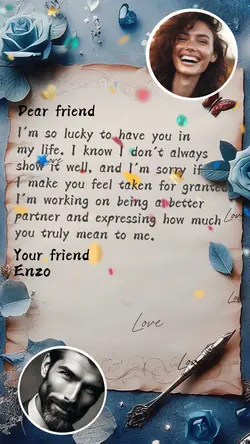 Dear friend
I'm so lucky to have you in
my life. I know I don't always
show it well, and I'm sorry if
I make you feel taken for granted
I'm working on being a better
partner and expressing how much
you truly mean to me.
Your friend
Enzo
Love
Love